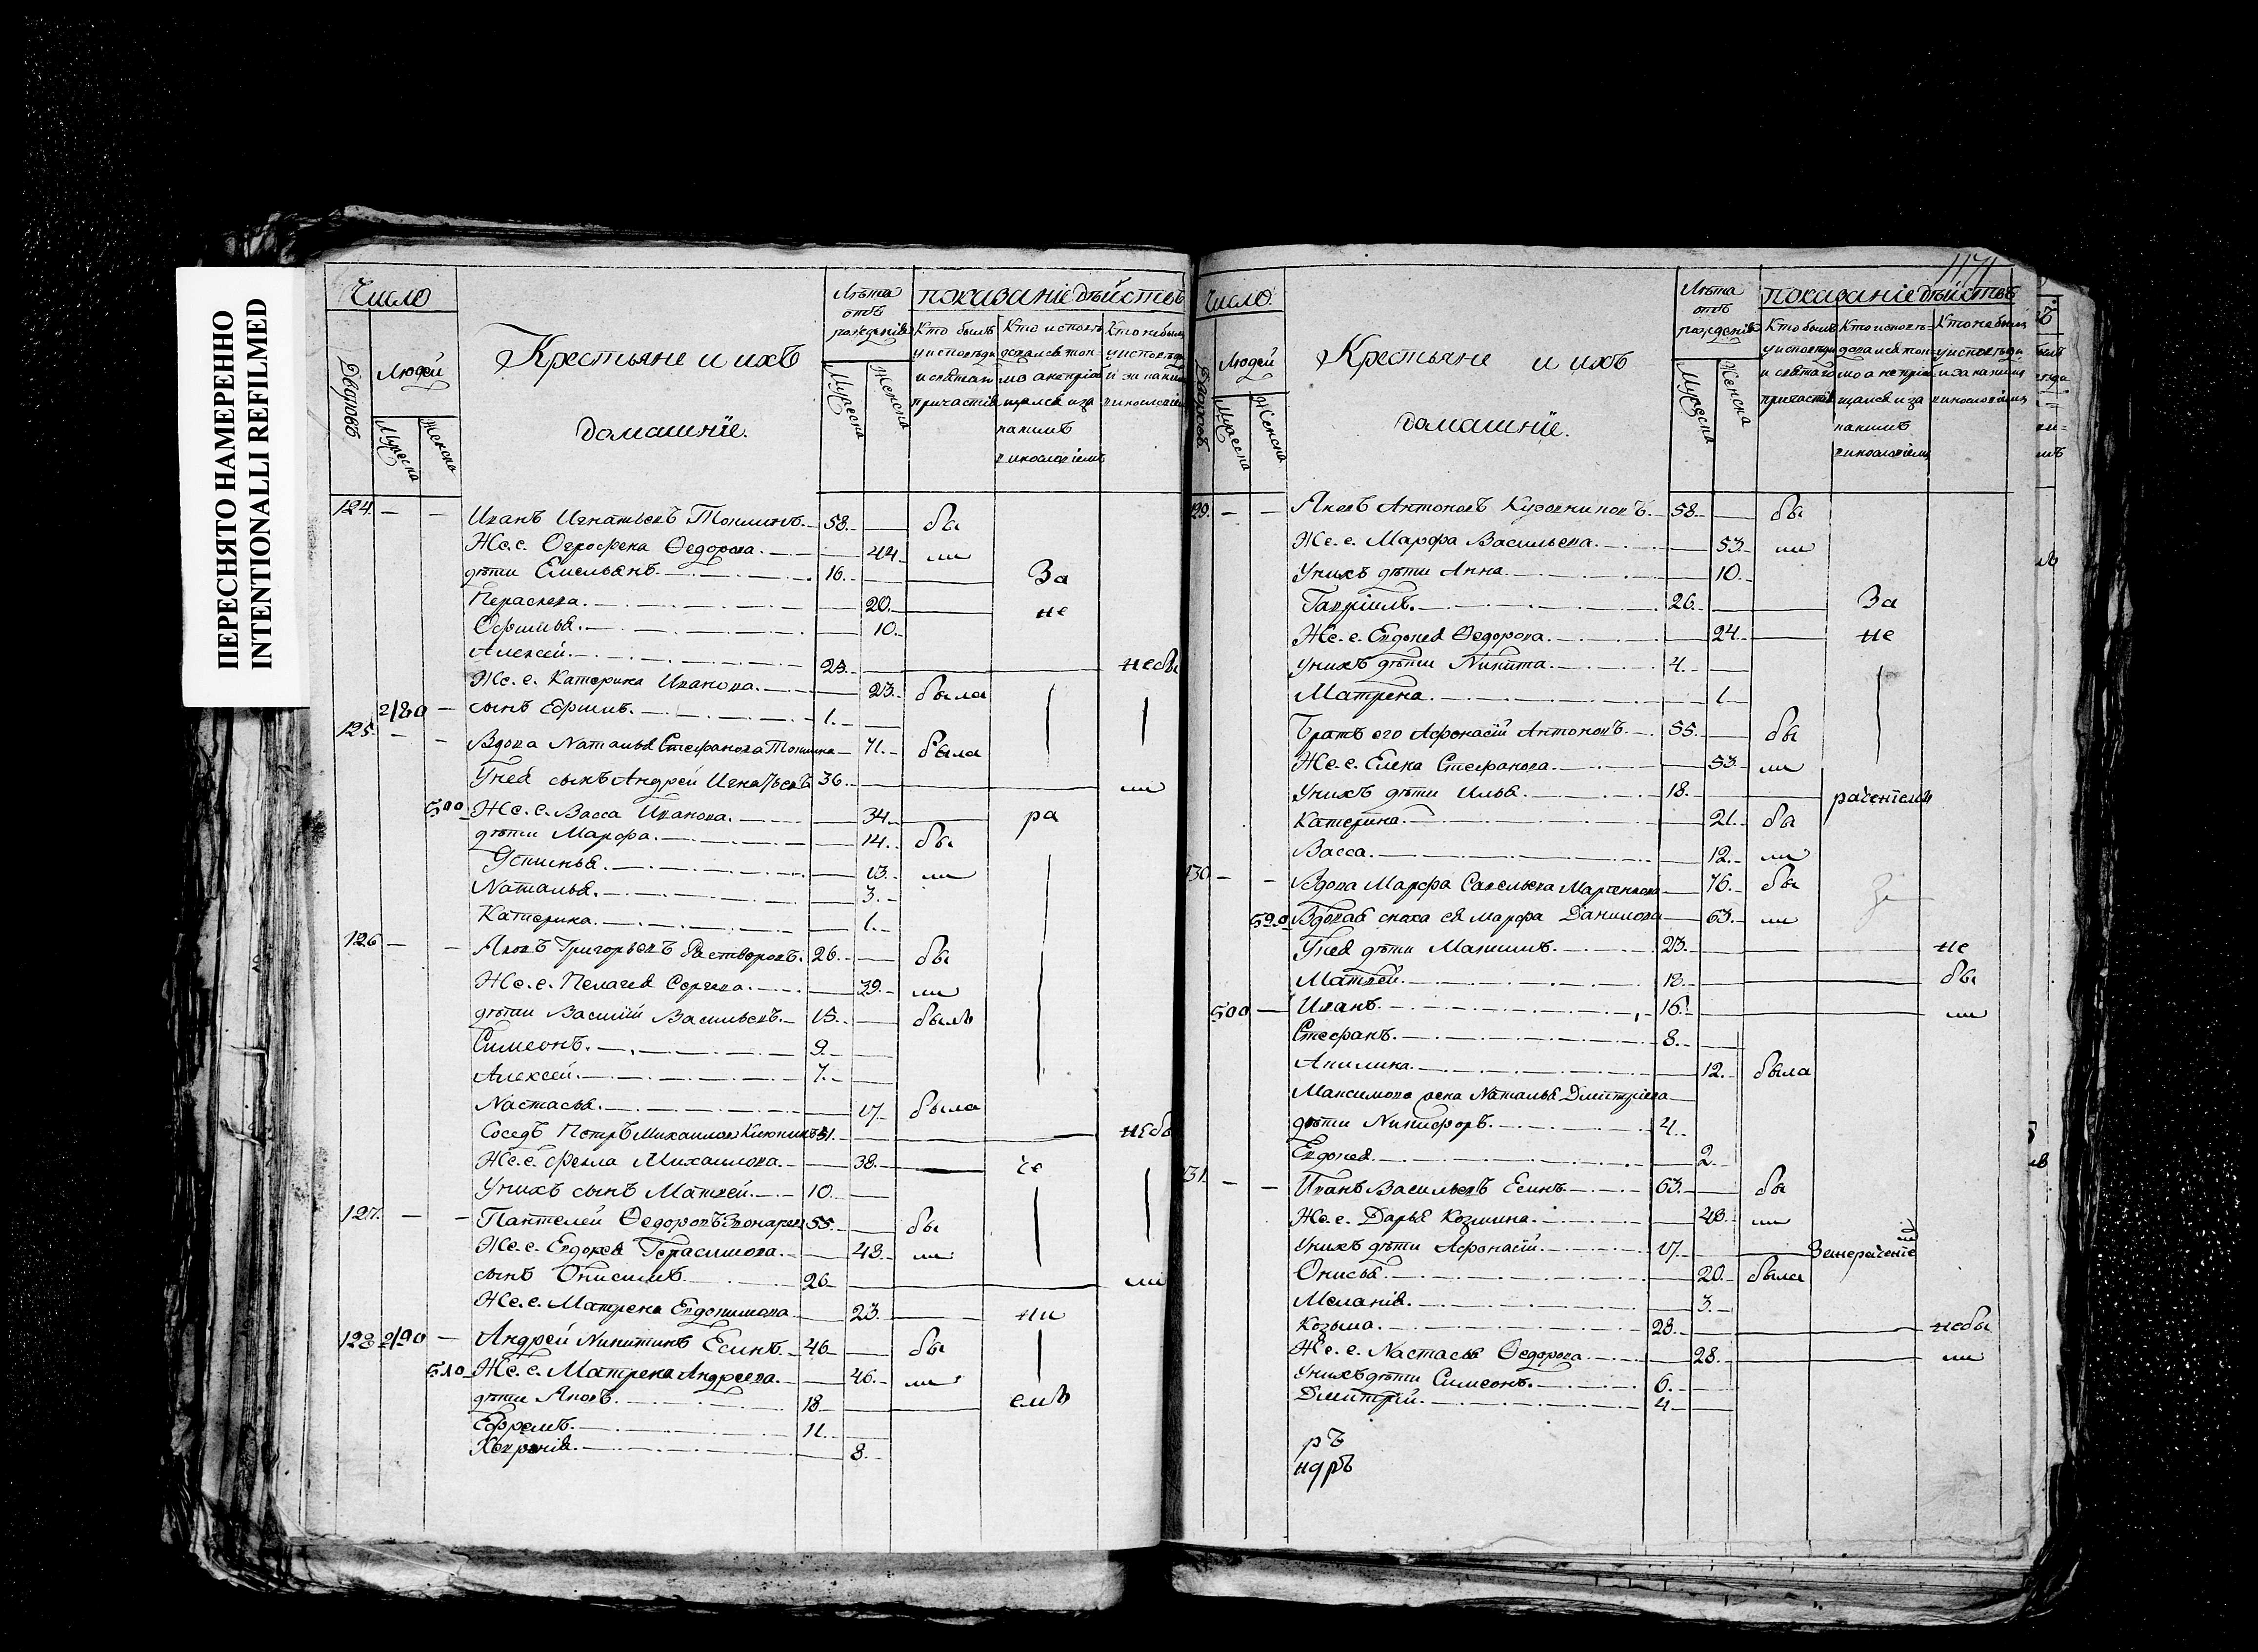 ПЕРЕСНЯТО НАМЕРЕННО
INTENTIONALLI REFILMED
Число
Дворовъ
Людей
Мужеска
Женска
Крестьяне и ихъ
домашніе.
Лѣта
отъ
рожденія
Мужеска
Женска
показаніе дѣйствъ
Кто былъ
у исповѣди
и святаго
причастія
Кто исповѣ-
довался ток-
мо а не пріоб-
щался и за
какимъ
винословіемъ
Кто не былъ
у исповѣди
и за какимъ
винословіемъ
124. Иванъ Игнатьевъ 58. бы
Же. е. Огрофена Ѳедорова. 44. ли
дѣти Емельянъ. 16. За
Пераскева. 20. не
Офимья. 10.
Алексей. 23. небы
Же. е. Катерина Иванова. 23. была
280 сынъ Ефимъ. 1.
125. Вдова Наталья Стефанова 71. была
У нея сынъ Андрей Игнатьевъ 36. ли
500 Же. е. Васса Иванова. 34. ра
дѣти Марфа. 14. бы
Устинья. 13. ли
Наталья. 3.
Катерина. 1.
126 Яковъ Григорьевъ Растворовъ. 26. бы
Же. е. Пелагея Сергева. 39. ли
дѣти Василій Васильевъ. 15. былъ
Симеонъ. 9.
Алексей. 7.
Настасья. 17. была
Соседъ Петръ Михаиловъ небы
Же. е. Фекла Михаилова. 38. че
У нихъ сынъ Матвей. 10.
127. Пантелей Ѳедоровъ 55. бы
Же. е. Евдокея Герасимова. 43. ли
сынъ Онисимъ. 26 ли
Же. е. Матрена Евдокимова. 23. ни
128 290 Андрей Никитинъ Есинъ. 46 бы
510 Же. е. Матрена Андреева. 46. ли
дѣти Яковъ. 18 емъ
Ефремъ. 11.
Хевронія. 8.
1171
Число
Дворовъ
Людей
Мужеска
Женска
Крестьяне и ихъ
домашніе.
Лѣта
отъ
рожденія
Мужеска
Женска
показаніе дѣйствъ
Кто былъ
у исповѣди
и святаго
причастія
Кто исповѣ-
довался ток-
мо а не пріоб-
щался и за
какимъ
винословіемъ
Кто не былъ
у исповѣди
и за какимъ
винословіемъ
129. Яковъ Антоновъ 58. бы
Же. е. Марфа Васильева. 53. ли
У нихъ дѣти Анна. 10.
Гавріилъ. 26. За
Же. е. Евдокея Ѳедорова. 24. не
у нихъ дѣти Никита. 4.
Матрена. 1.
Братъ его Афонасій Антоновъ. 55. бы
Же. е. Елена Стефанова. 53. ли
У нихъ дѣти Илья. 18. раченіемъ
Катерина. 21. бы
Васса. 12. ли
130 Вдова Марфа Савельева 76. бы
520 Вдовая сноха ея Марфа Данилова 63. ли
У нея дѣти Макимъ. 23. не
Матвей. 18. бы
500 Иванъ. 16. ли
Стефанъ. 8.
Акилина. 12. была
Максимова жена Наталья Дмитріева
дѣти Никифоръ. 4.
Евдокея. 2.
131. Иванъ Васильевъ Есинъ. 63. бы
Же. е. Дарья Козмина. 48. ли
У нихъ дѣти Афонасій. 17. Занераченіе
Онисья. 20. была
Меланія. 3.
Козьма. 28. небы
Же. е. Настасья Ѳедорова. 28. ли
У нихъ дѣти Симеонъ. 6.
Дмитрій. 4
ръ
ндръ